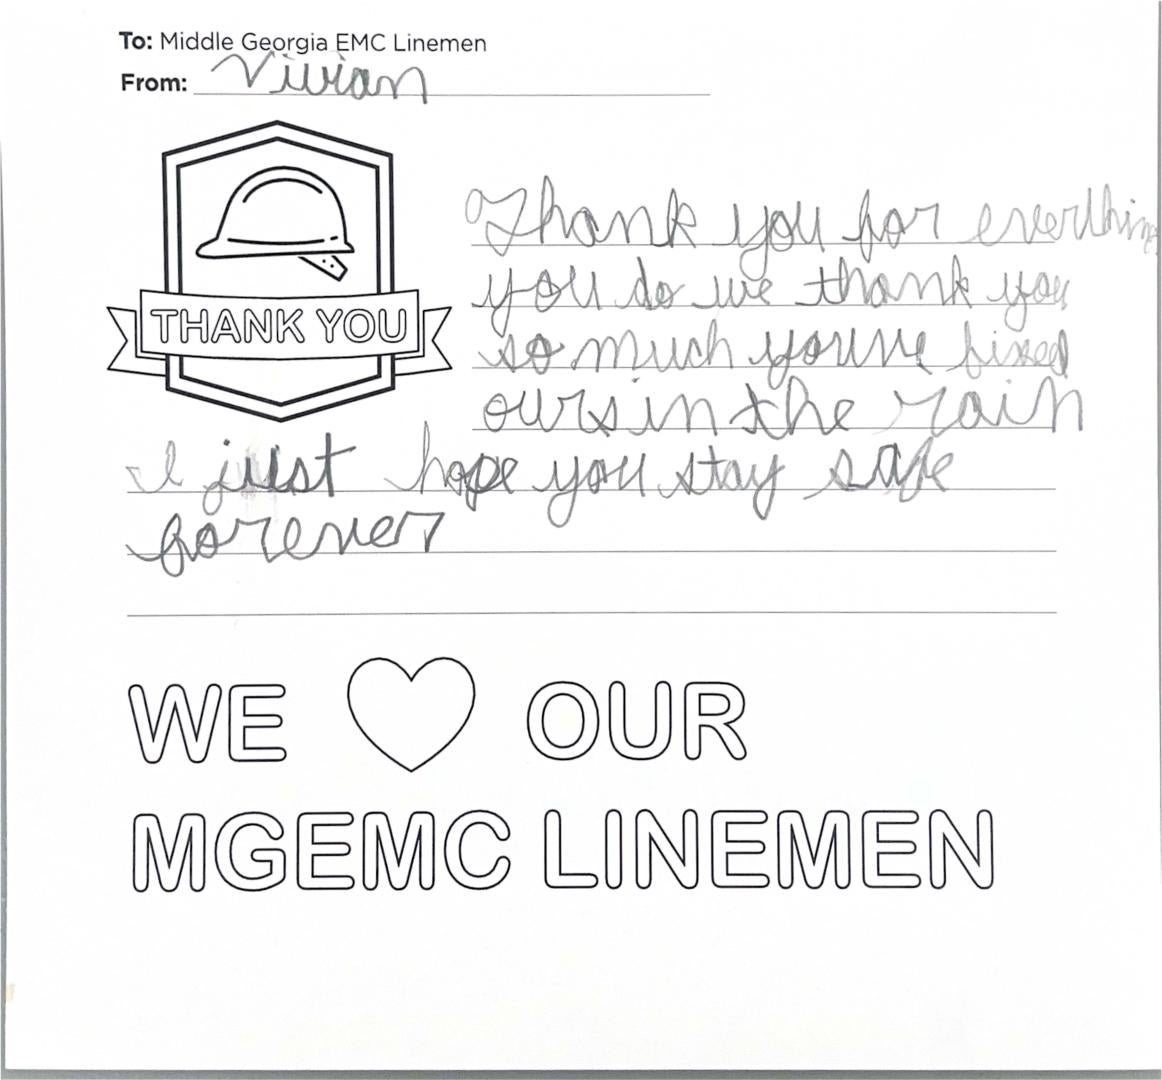 To: Middle Georgia EMC Linemen
From: Vivian
THANK YOU
Thank you for everthing
you do we thank you
so much youve fixed
ours in the rain
I just hope you stay safe
forever
WE OUR
MGEMC LINEMEN